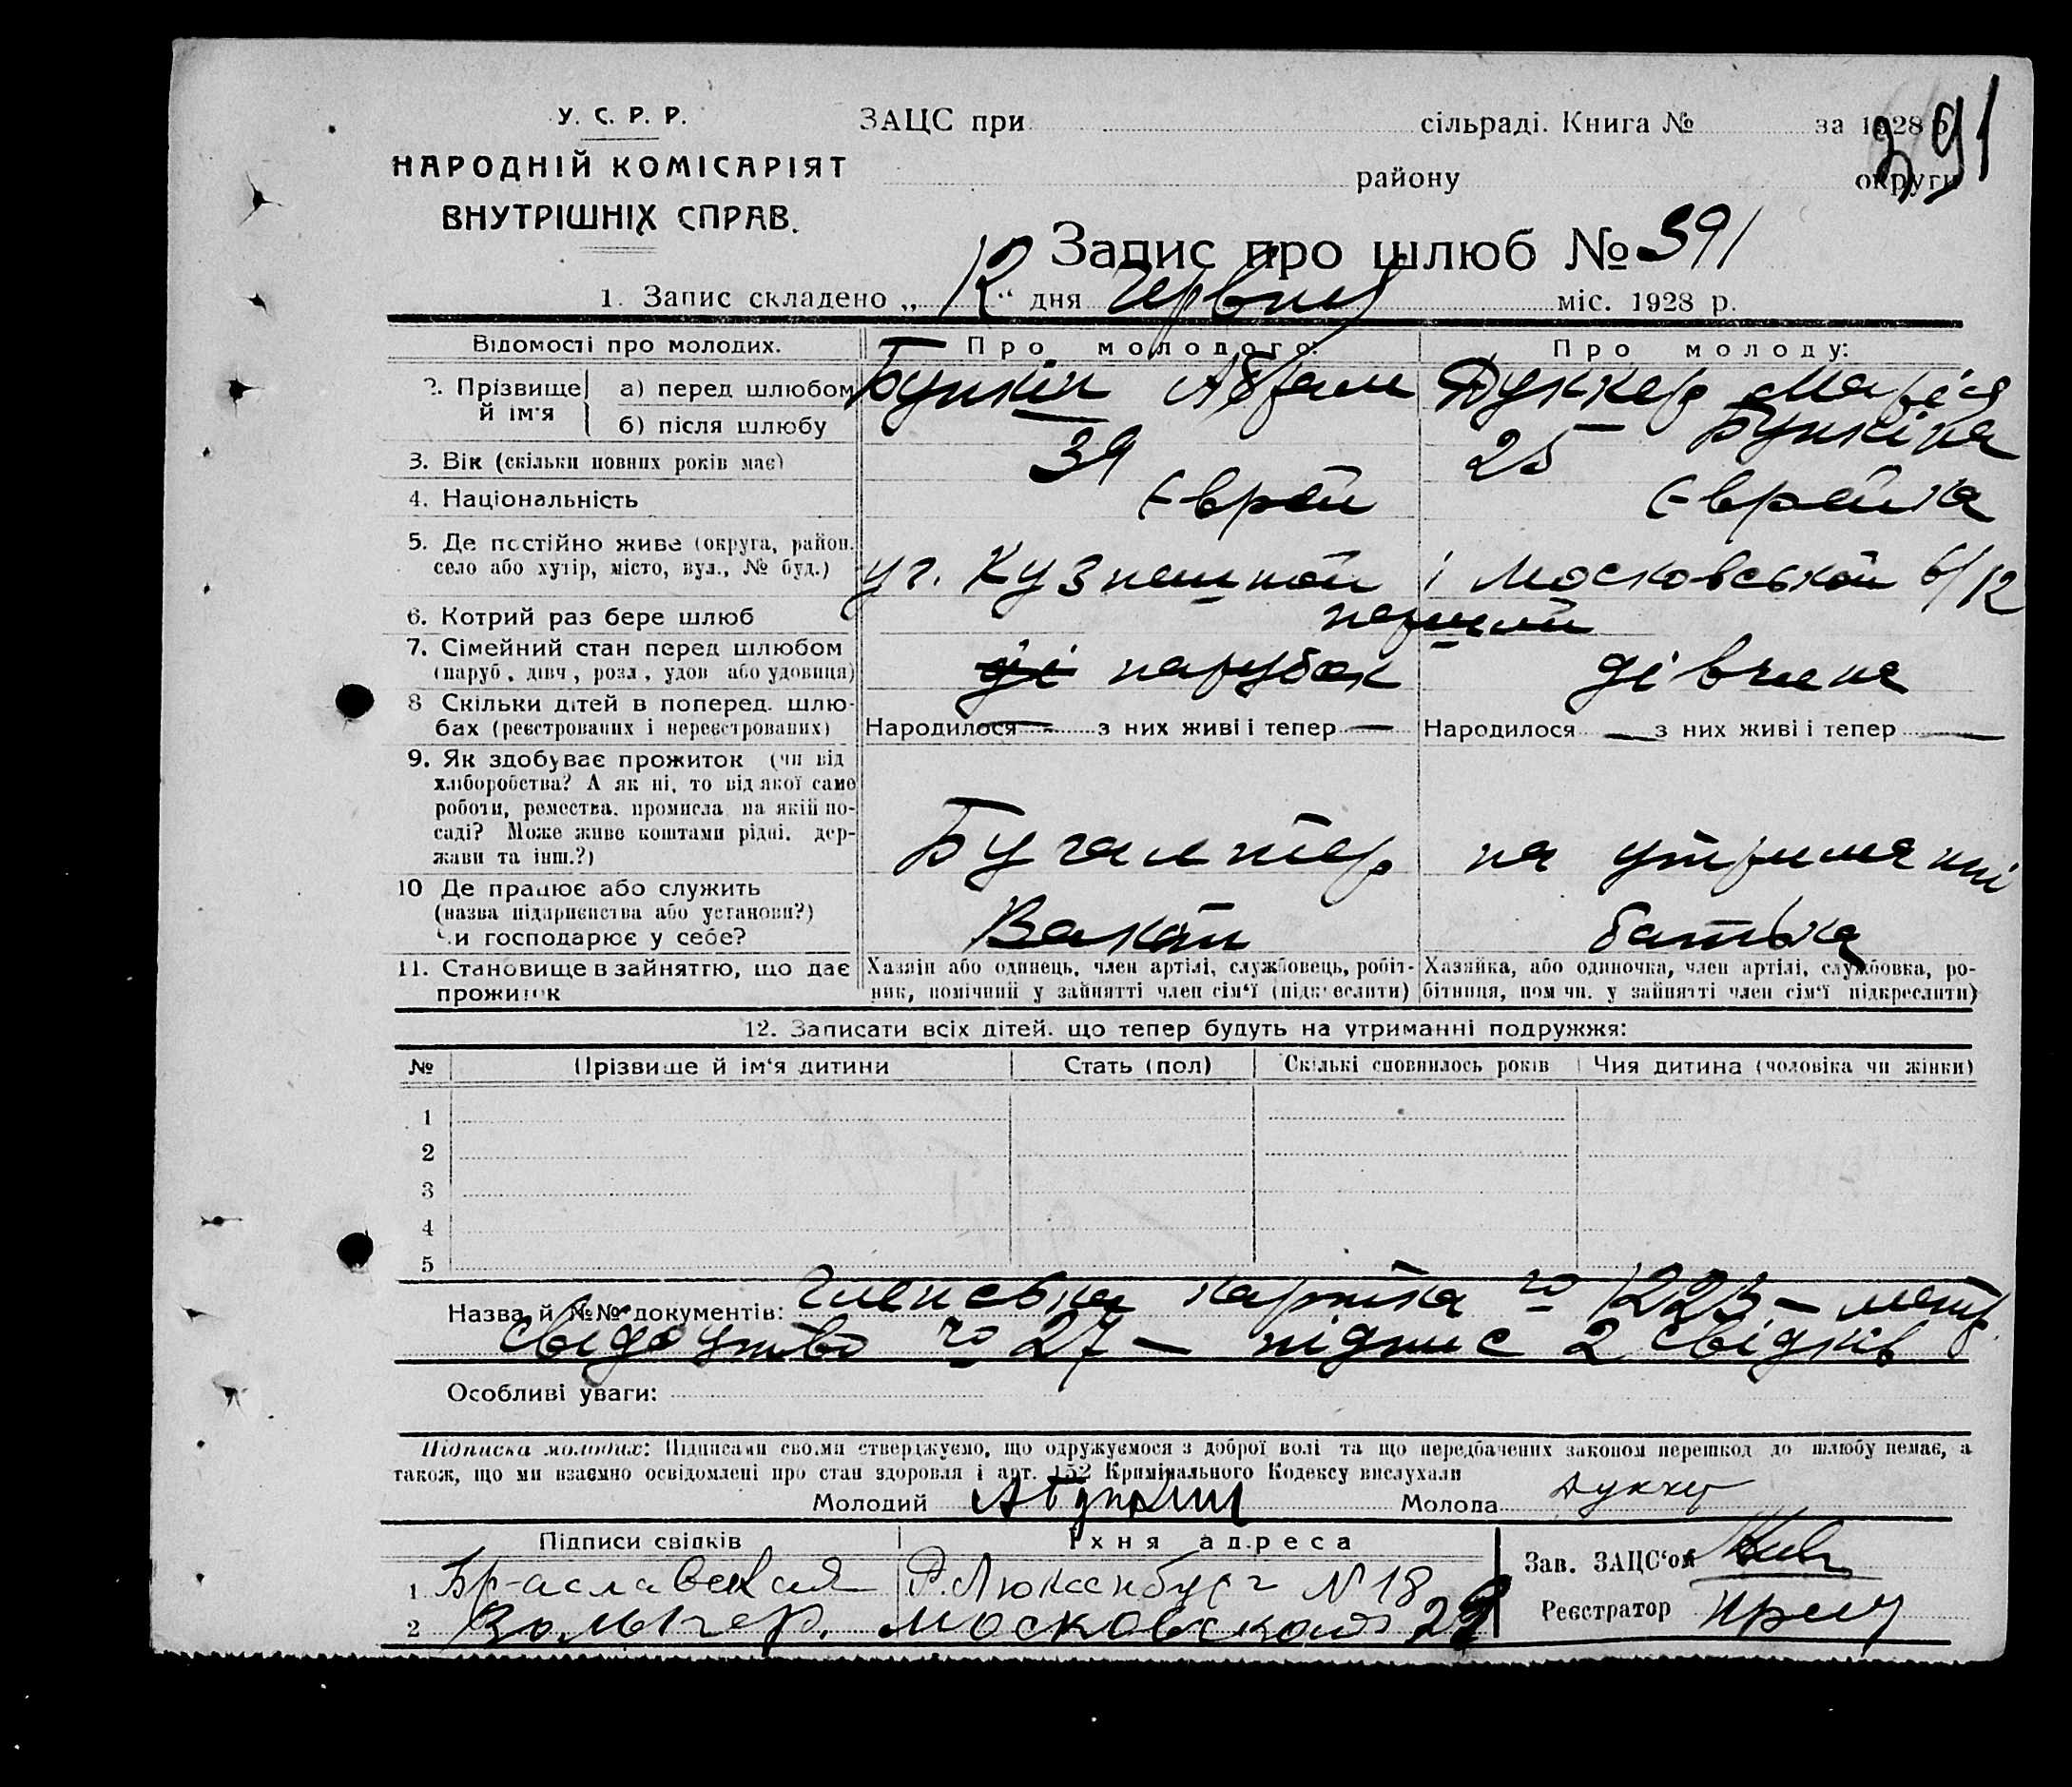 391
У. С. Р. Р.
НАРОДНІЙ КОМІСАРІЯТ
ВНУТРІШНІХ СПРАВ.
ЗАЦС при сільраді. Книга № за 1928 р.
району округи
Запис про шлюб № 391
1. Запис складено „12“ дня Червня міс. 1928 р.
Відомості про молодих. Про молодого: Про молоду:
2. Прізвище й ім'я а) перед шлюбом Бункін Абрам Дуккер Марія
б) після шлюбу Бункіна
3. Вік (скільки повних років має) 39 25
4. Національність Єврей Єврейка
5. Де постійно живе (округа, район.
село або хутір, місто, вул., № буд.) уг. Кузнешной і Московської 6/12
6. Котрий раз бере шлюб перший
7. Сімейний стан перед шлюбом
(паруб., дівч., розл., удов або удовиця) ді парубок дівчина
8 Скільки дітей в поперед. шлю-
бах (реєстрованих і нереєстрованих) Народилося — з них живі і тепер — Народилося — з них живі і тепер —
9. Як здобуває прожиток (чи від
хліборобства? А як ні, то від якої саме
роботи, ремества, промисла на якій по-
саді? Може живе коштами рідні, дер-
жави та інш.?) Бугалтер на утриманні
10 Де працює або служить
(назва підприємства або установи?)
Чи господарює у себе? батька
11. Становище в зайняттю, що дає
прожиток
Хазяїн або одинець, член артілі, службовець, робіт-
ник, помічний у зайнятті член сім'ї (підкреслити)
Хазяйка, або одиночка, член артілі, службовка, ро-
бітниця, помічн. у зайнятті член сім'ї підкреслити)
12. Записати всіх дітей, що тепер будуть на утриманні подружжя:
№ Прізвище й ім'я дитини Стать (пол) Скількі сповнилось років Чия дитина (чоловіка чи жінки)
1
2
3
4
5
Назва й №№ документів: Членська картка № 1223 — метр.
свідоцтво № 27 — підпис 2 свідків
Особливі уваги:
Підписка молодих: Підписами своїми стверджуємо, що одружуємося з доброї волі та що передбачених законом перешкод до шлюбу немає, а
також, що ми взаємно освідомлені про стан здоровля і арт. 152 Кримінального Кодексу вислухали
Молодий АБункин Молода Дуккер
Підписи свідків Їхня адреса
1 Браславская Р. Люксенбург N 18
2 Вольгер. Московская 29
Зав. ЗАЦС'ом
Реєстратор